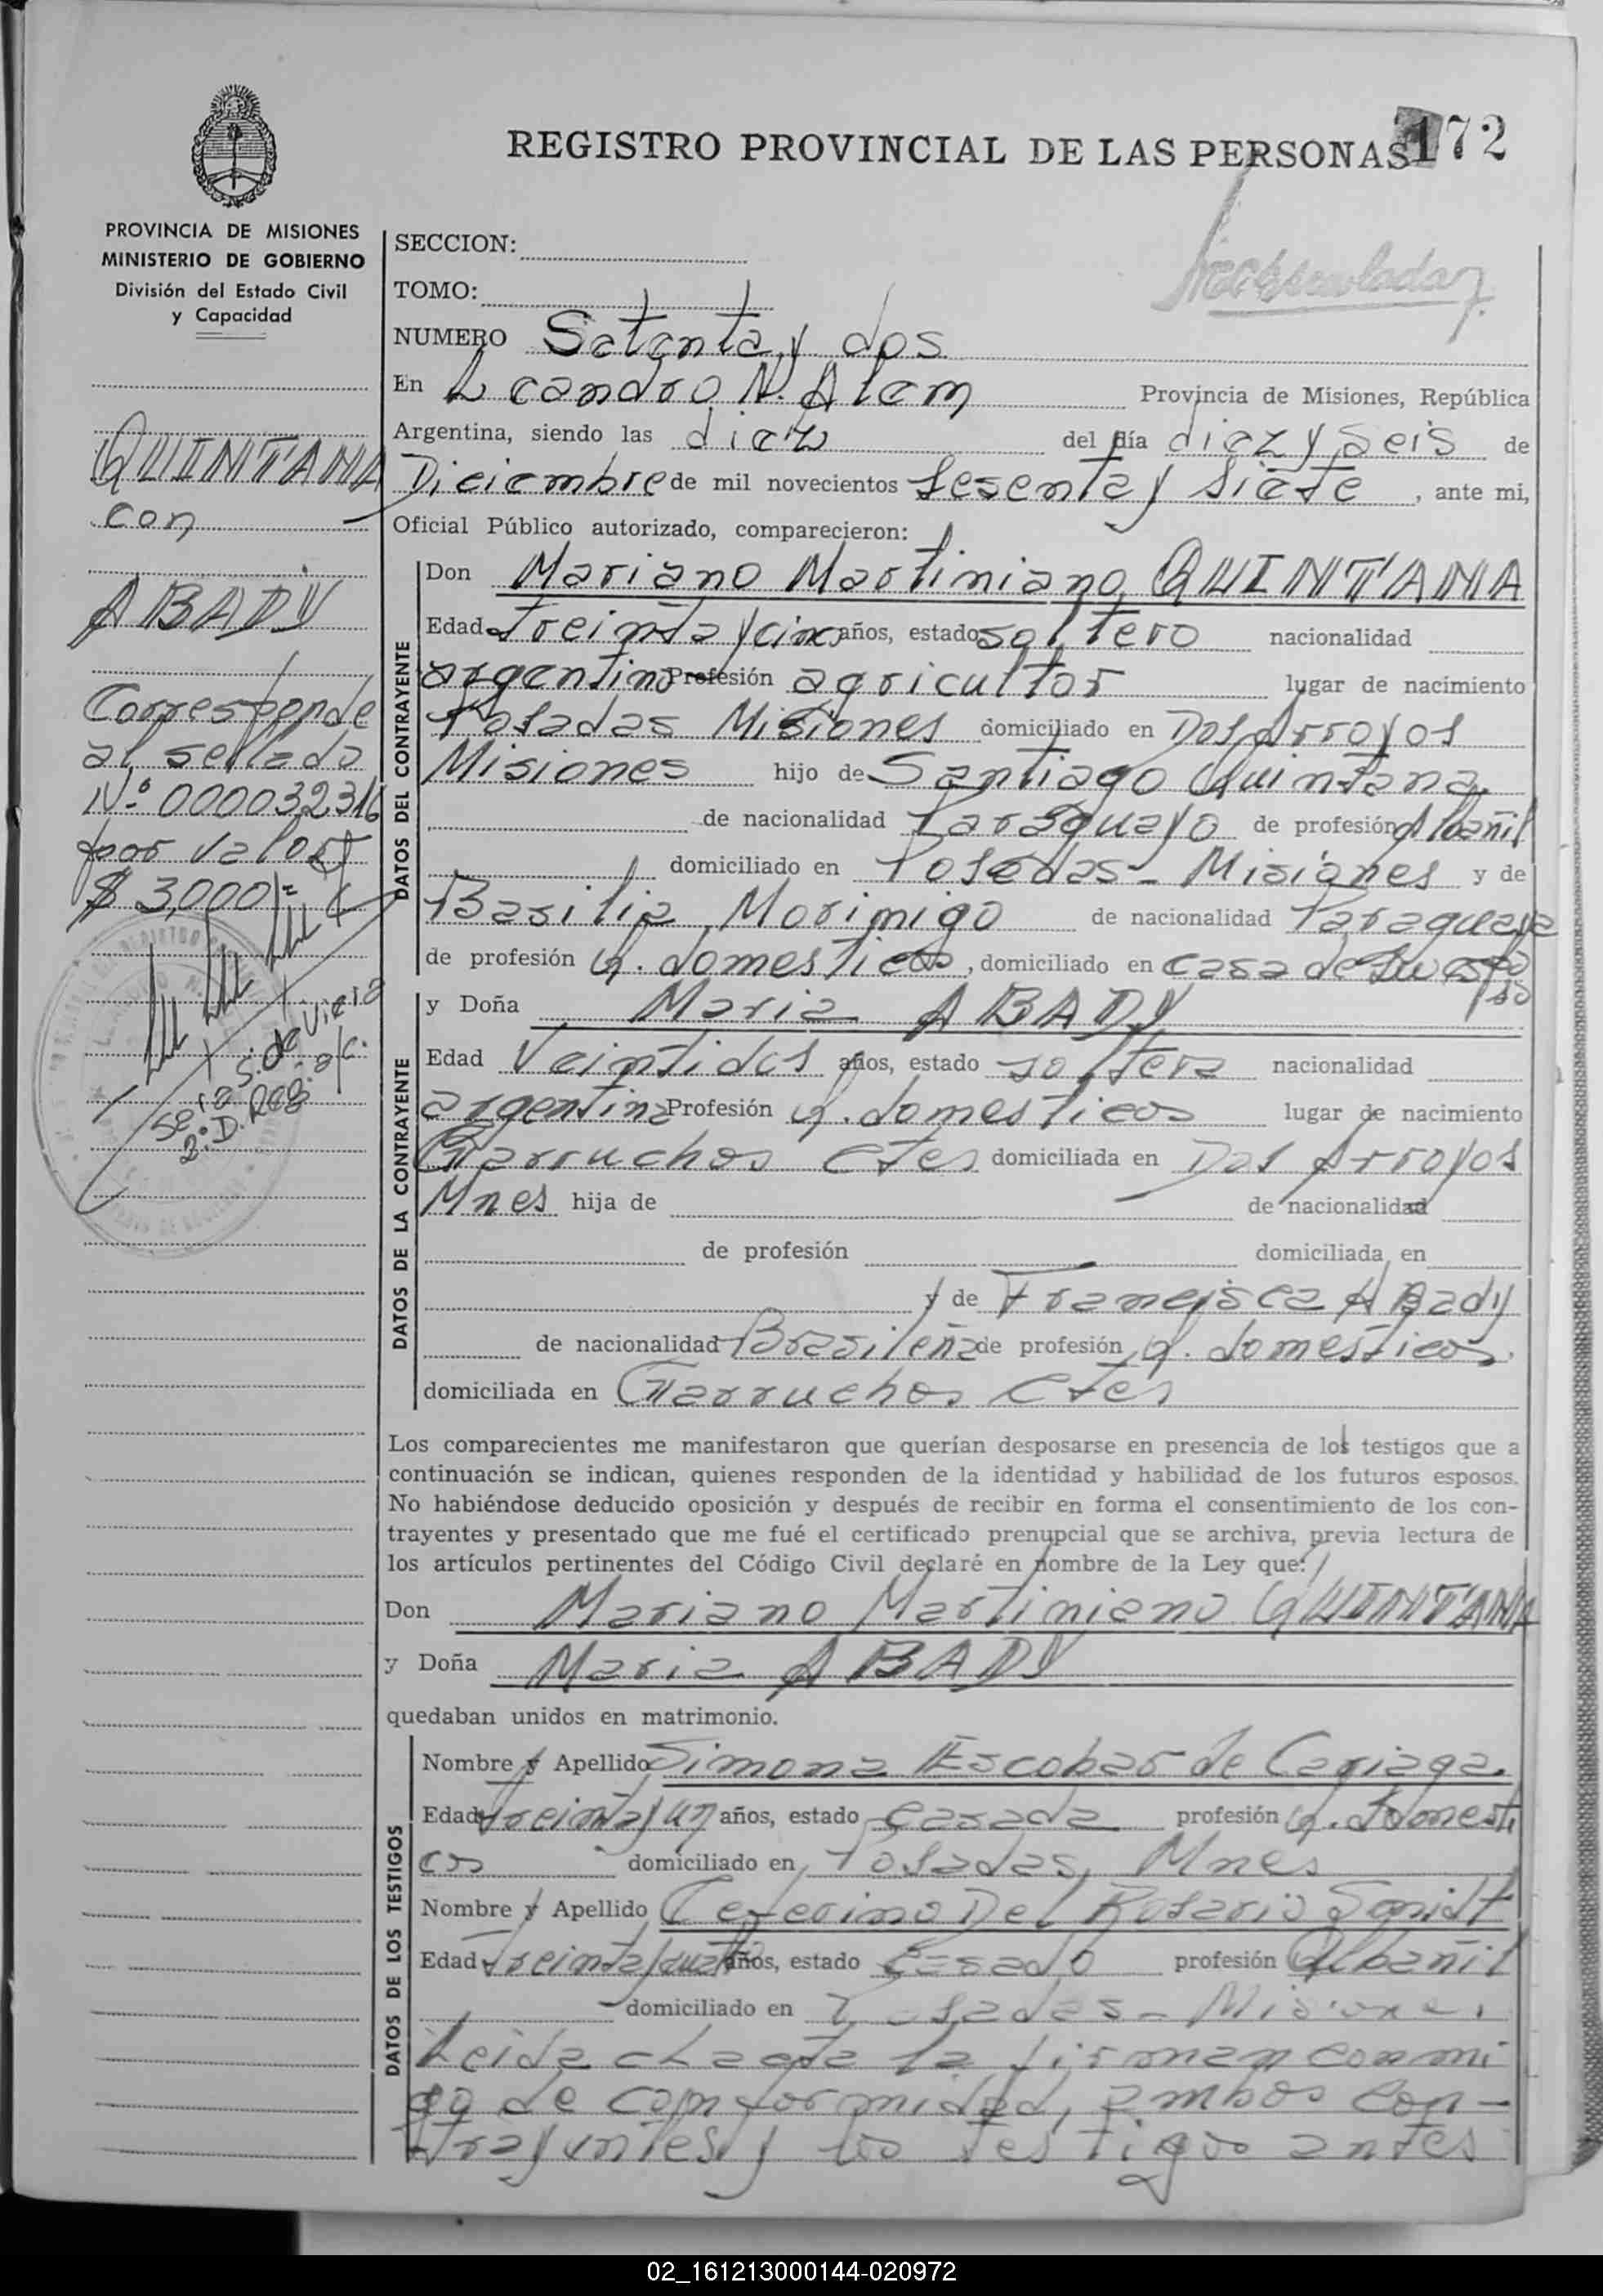 REGISTRO PROVINCIAL DE LAS PERSONAS 172
PROVINCIA DE MISIONES
MINISTERIO DE GOBIERNO
División del Estado Civil
y Capacidad
QUINTANA
con
ABADY
Corresponde
al sellado
Nº 000032316
por valor
$ 3,000=
S. de Vieira
2º D. Reg.
SECCION:
TOMO:
NUMERO Setenta y dos
En Leandro N. Alem Provincia de Misiones, República
Argentina, siendo las diez del día diez y seis de
Diciembre de mil novecientos sesenta y siete, ante mi,
Oficial Público autorizado, comparecieron:
DATOS DEL CONTRAYENTE
Don Mariano Martiniano QUINTANA
Edad treinta y cinco años, estado soltero nacionalidad
argentino Profesión agricultor lugar de nacimiento
Posadas Misiones domiciliado en Dos Arroyos
Misiones hijo de Santiago Quintana
de nacionalidad Paraguayo de profesión Albañil
domiciliado en Posadas - Misiones y de
Basilia Morinigo de nacionalidad Paraguaya
de profesión Q. domesticos, domiciliado en casa de su esposo
DATOS DE LA CONTRAYENTE
y Doña Maria ABADY
Edad Veintidos años, estado soltera nacionalidad
argentina Profesión Q. domesticos lugar de nacimiento
Garruchos Ctes domiciliada en Dos Arroyos
Mnes hija de de nacionalidad
de profesión domiciliada en
y de Francisca Abady
de nacionalidad Brasileña de profesión Q. domesticos.
domiciliada en Garruchos Ctes
Los comparecientes me manifestaron que querían desposarse en presencia de los testigos que a
continuación se indican, quienes responden de la identidad y habilidad de los futuros esposos.
No habiéndose deducido oposición y después de recibir en forma el consentimiento de los con-
trayentes y presentado que me fué el certificado prenupcial que se archiva, previa lectura de
los artículos pertinentes del Código Civil declaré en nombre de la Ley que:
Don Mariano Martiniano QUINTANA
y Doña Maria ABADY
quedaban unidos en matrimonio.
DATOS DE LOS TESTIGOS
Nombre y Apellido Simona Escobar de Cariaga.
Edad treinta y un años, estado casada profesión Q. domesti
cos domiciliado en Posadas, Mnes
Nombre y Apellido Ceferino Del Rosario
Edad treinta y cuatro años, estado casado profesión Albañil
domiciliado en Posadas - Misiones.
Leida el acta la firman conmi
go de conformidad, ambos con-
trayentes y los testigos antes
02_161213000144-020972